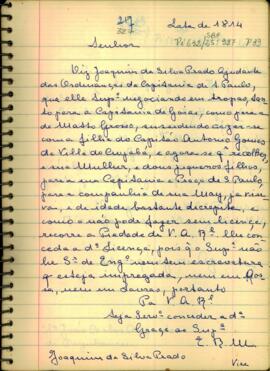 217
327
Lata de 1814
SBP
Pl 692/25: 987 P 99
Senhor
Diz Joaquim da Silva Prado Ajudante
das Ordenanças da Capitania de S. Paulo,
que elle Supe negociando em tropas, Sol
para a Capitania de Goiaz, como para a
de Matto Grosso, succedendo cazar-se
com a filha do Capitão Antonio Gomes
da Villa do Cuyabá, e agora se qr recolher
a sua Mulher, e dous piquenos filhos,
para a sua Capitania e Praça de S. Paulo,
para a companhia de sua May, já viu-
va, e de idade bastante decrepita, e
como o não pode fazer sem licença
recorre a Piedade de V. A. R. lhe con
ceda a da Licença, pois q o Supe não
he Sr de Engo nem tem escravatura
q esteja empregada, nem em Ro-
sa, nem em lavras, portanto
Pa V. A. R.
Seja Servo conceder a da
Graça ao Supe
E. R. M.
Joaquim da Silva Prado